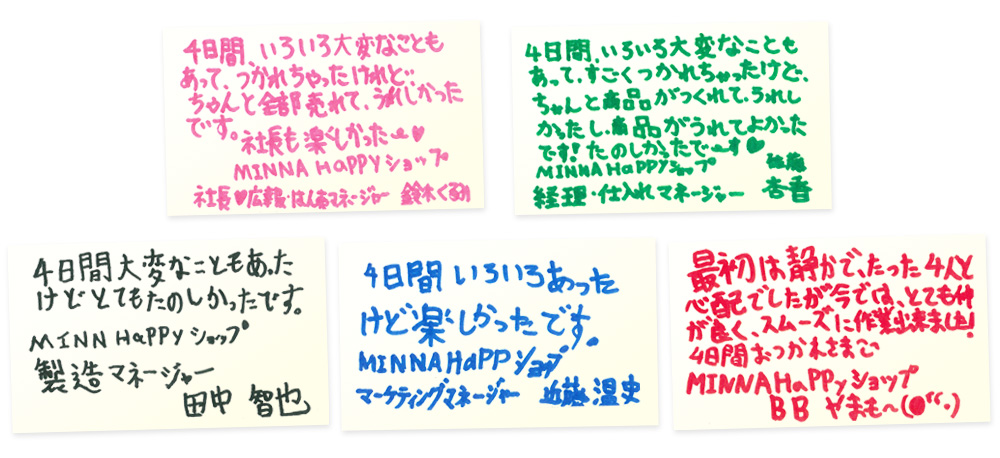 4日間、いろいろ大変なことも
あって、つかれちゃったけれど‥
ちゃんと全部売れて、うれしかった
です。
社長も楽しかった〜♥
MINNA HaPPY ショップ
社長♥広報・はんばいマネージャー 鈴木くるみ
4日間、いろいろ大変なことも
あって、すごくつかれちゃったけど、
ちゃんと商品がつくれて、うれし
かったし、商品がうれてよかった
です!たのしかったで〜す♥
MINNA HaPPYショップ
経理・仕入れマネージャー 佐藤
杏香
4日間大変なこともあった
けどとてもたのしかったです。
MINN HaPPYショップ
製造マネージャー
田中 智也
4日間いろいろあった
けど楽しかったです。
MINNA HaPPショップ
マーケティングマネージャー 近藤 温史
最初は静かで、たった4人と
心配でしたが今では、とても仲
が良く、スムーズに作業出来ました!
4日間おつかれさまご
MINNA HaPPyショップ
BB やまも〜